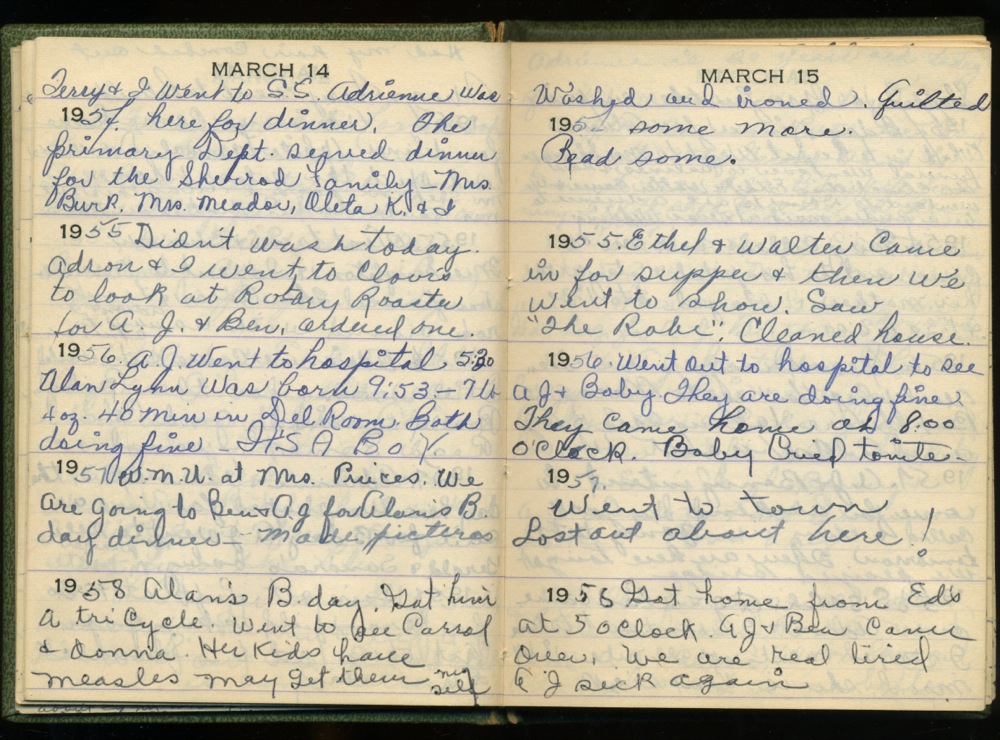 MARCH 14
Terry & I went to S.S. Adrienne was
1954. here for dinner. The
primary Dept. served dinner
for the Sherrod family – Mrs.
Burk, Mrs. Meador, Oleta K. & I
1955 Didn't wash today.
Adron & I went to Clovis
to look at Rotary Roaster
for A. J. & Ben, ordered one.
1956. A.J. went to hospital 5:30
Alan Lynn was born 9:53 – 7 lb
4 oz. 40 min in Del Room. Both
doing fine – IT'S A BOY.
1957 W.M.U. at Mrs. Prices. We
are going to Ben & A J for Alan's B
day dinner – Made pictures
1958 Alan's B. day. Got him
a tricycle. Went to see Carrol
& Donna. Her kids have
measles may get them my
self
MARCH 15
Washed and ironed. Quilted
195 some more.
Read some.
1955. Ethel & Walter came
in for supper & then we
went to show. Saw
"The Robe". Cleaned house.
1956. Went out to hospital to see
A J & Baby. They are doing fine.
They came home at 8:00
o'clock. Baby cried tonite –
1957.
Went to town
Lost out about here!
1958 Got home from Ed's
at 5 o clock. A J & Ben came
over. We are real tired
& J sick again